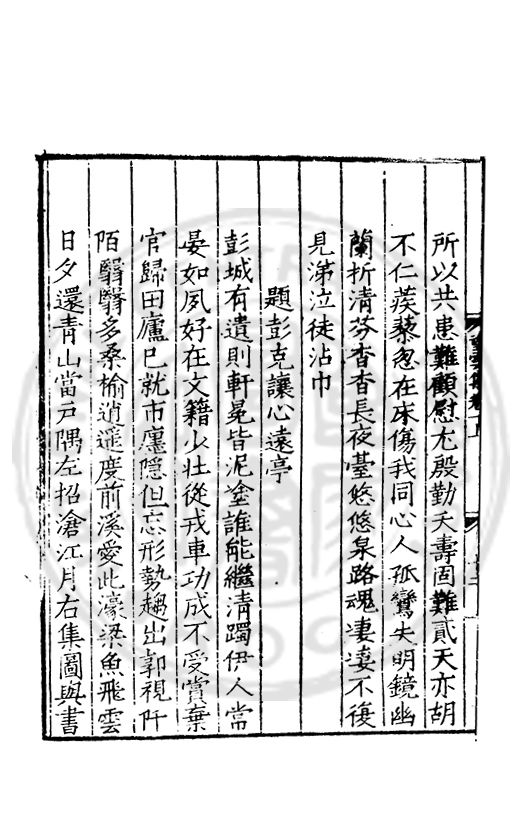 所以共患難顧慰尤殷勤夭壽固難貳天亦胡
不仁蒺藜忽在床傷我同心人孤鸞失明鏡幽
蘭折清芬杳杳長夜臺悠悠泉路魂凄凄不復
見涕泣徒沾巾
題彭克讓心遠亭
彭城有遺則軒冕皆泥塗誰能繼清躅伊人常
晏如夙好在文籍少壯從戎車功成不受賞棄
官歸田廬已就市廛隱但忘形勢趨出郭視阡
陌翳翳多桑榆逍遥度前溪愛此濠梁魚飛雲
日夕還青山當戸隅左招滄江月右集圖與書